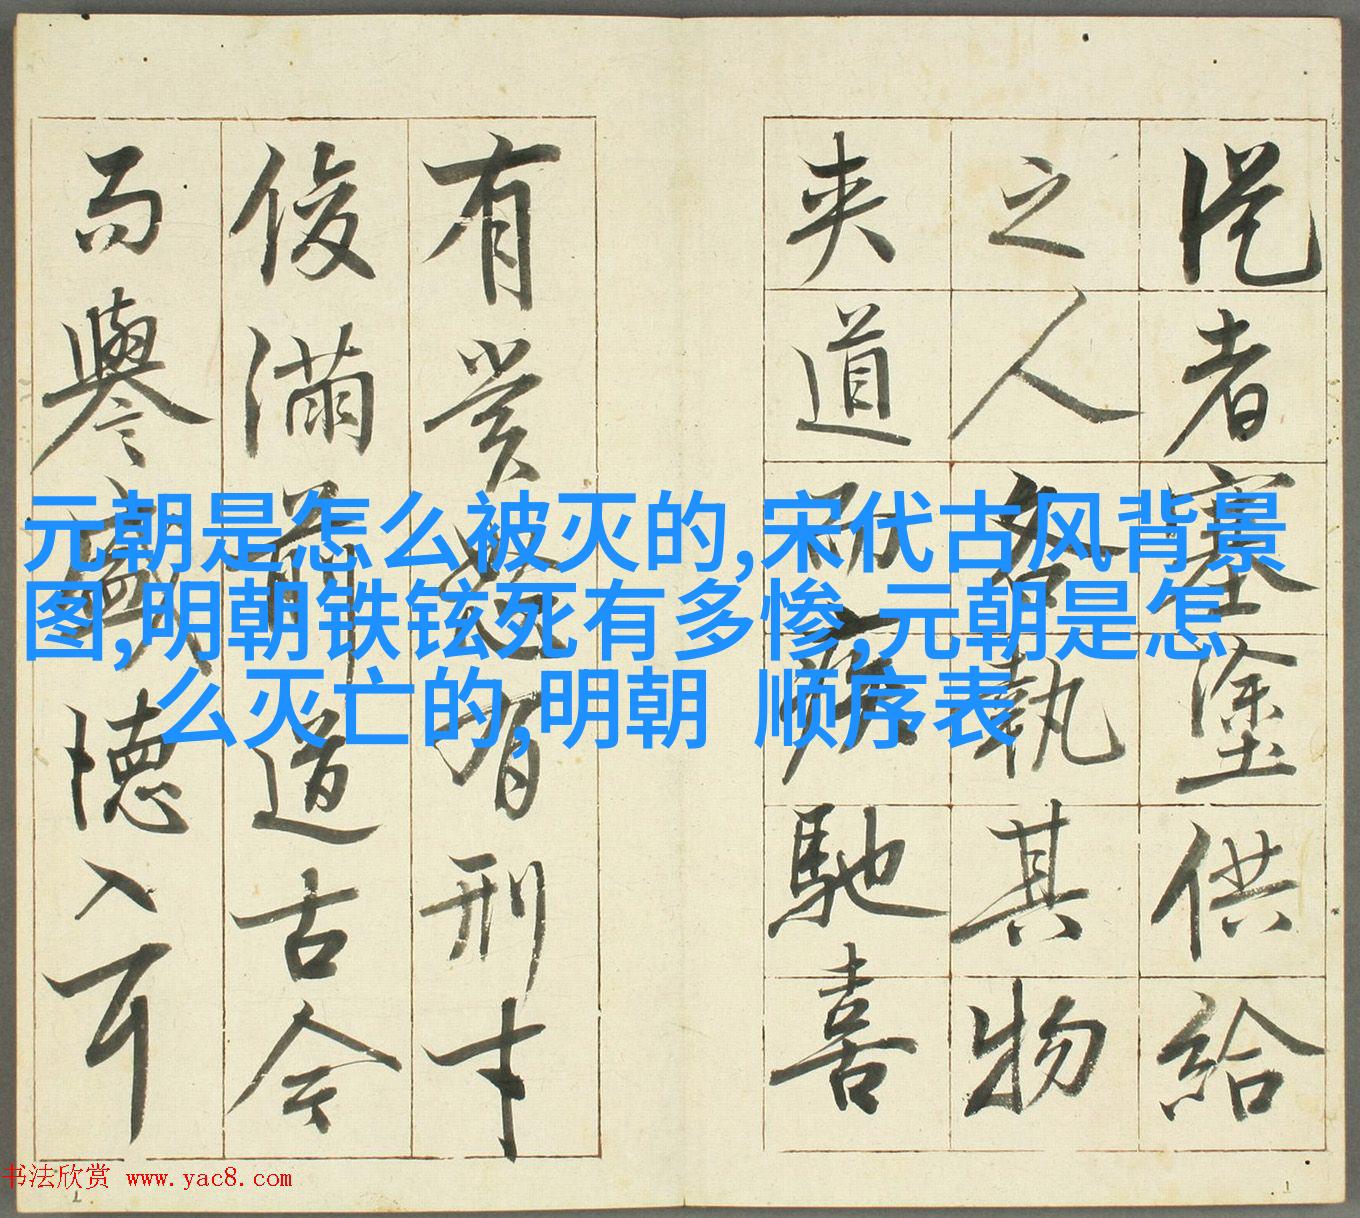 從者塞塗供給
之人各執其物
夾道而疾馳喜
有賞怒有刑才
俊滿前道古今
而譽盛德入耳
元朝是怎么被灭的,宋代古风背景
图,明朝铁铉死有多惨,元朝是怎
么灭亡的,明朝 顺序表
书法欣赏 www.yac8.com